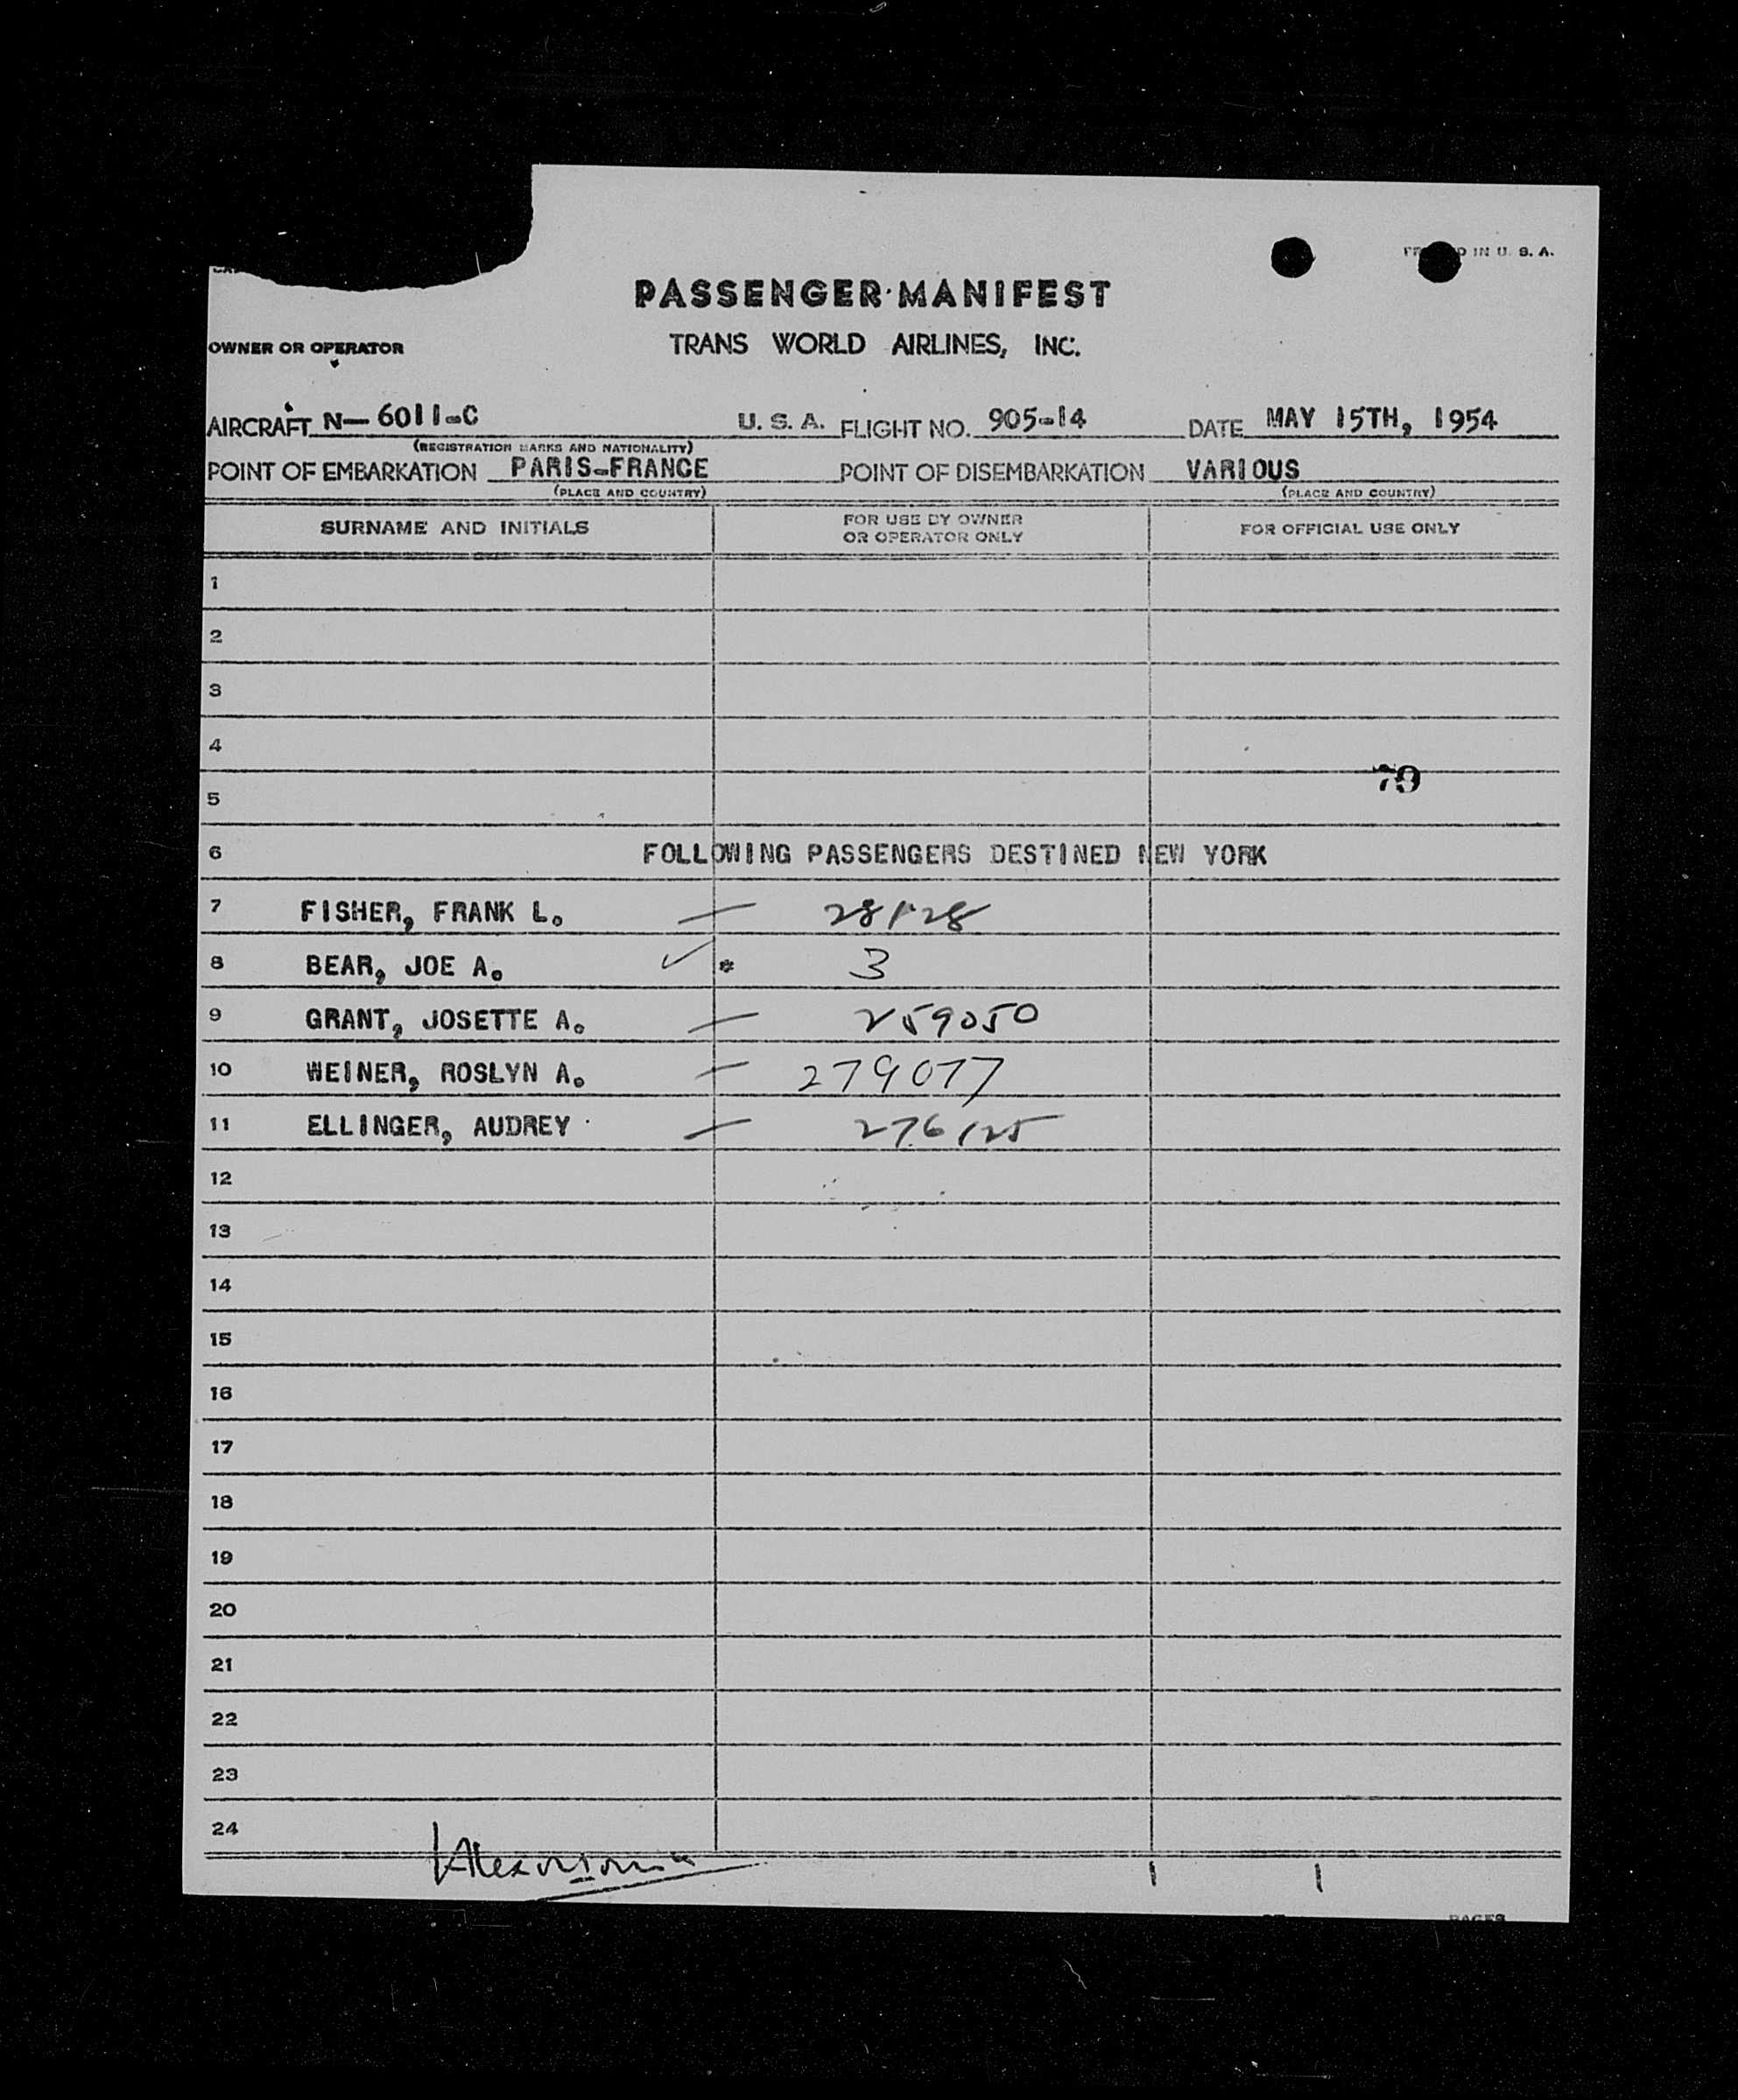 IN U. S. A.
PASSENGER MANIFEST
OWNER OR OPERATOR TRANS WORLD AIRLINES, INC.
AIRCRAFT N- 6011-C U. S. A. FLIGHT NO. 905-14 DATE MAY 15TH, 1954
(REGISTRATION MARKS AND NATIONALITY)
POINT OF EMBARKATION PARIS-FRANCE POINT OF DISEMBARKATION VARIOUS
(PLACE AND COUNTRY) (PLACE AND COUNTRY)
SURNAME AND INITIALS FOR USE BY OWNER OR OPERATOR ONLY FOR OFFICIAL USE ONLY
1
2
3
4
79
5
6 FOLLOWING PASSENGERS DESTINED NEW YORK
7 FISHER, FRANK L. —
8 BEAR, JOE A. ✓ * 3
9 GRANT, JOSETTE A. — 259050
10 WEINER, ROSLYN A. — 279077
11 ELLINGER, AUDREY — 276125
12
13
14
15
16
17
18
19
20
21
22
23
24
PAGES